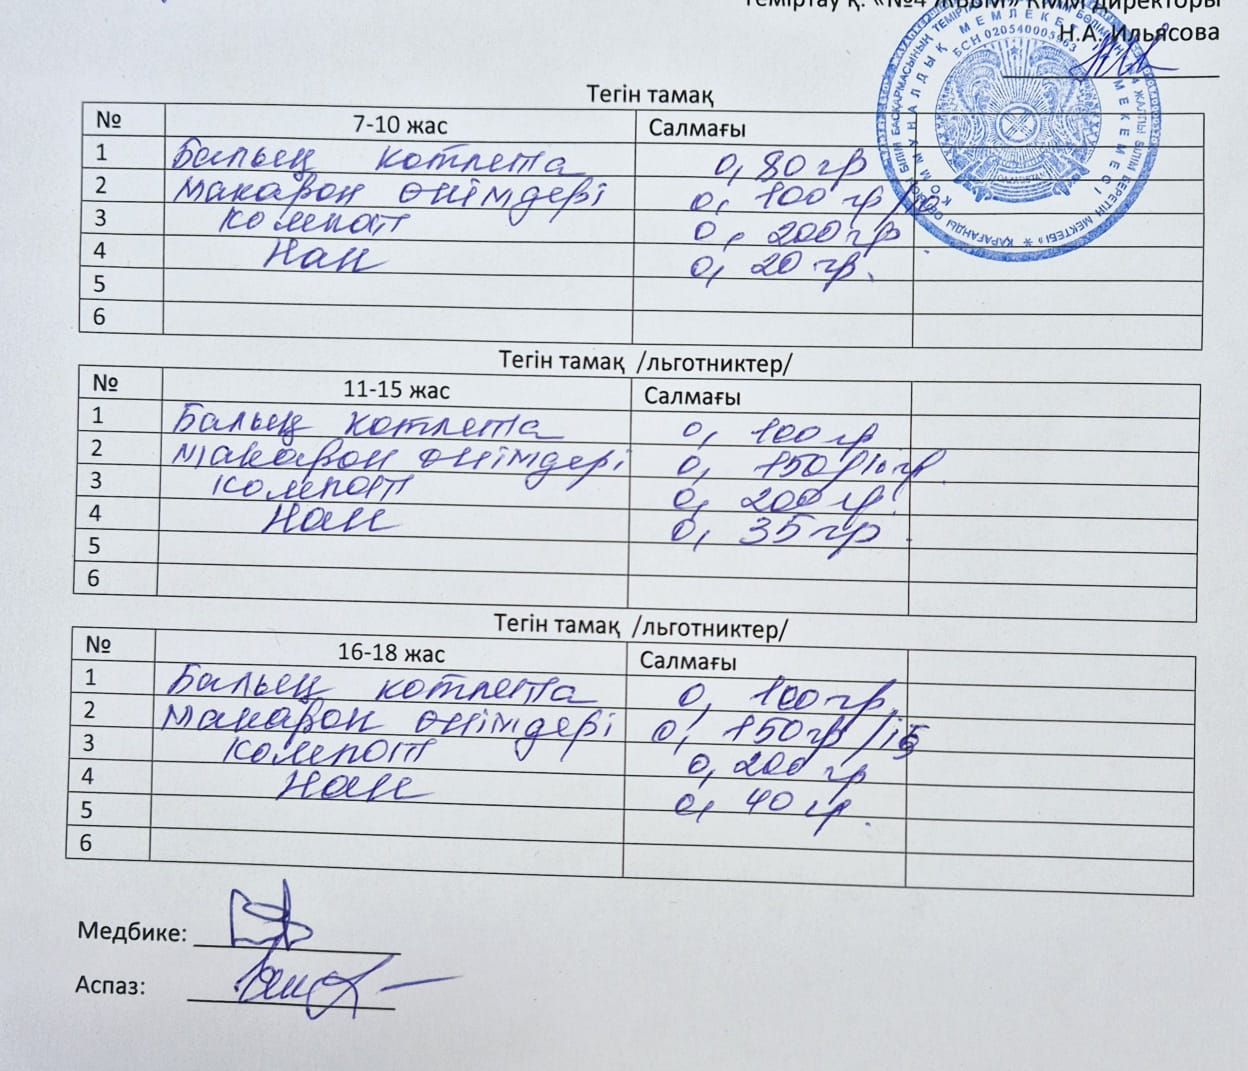 Теміртау қ. «№4 ЖББМ» КММ директоры
Н.А. Ильясова
БСН 020540005863
Тегін тамақ
№ 7-10 жас Салмағы
1 Балық котлета 0,80 гр
2 Макарон өнімдері 0, 100 гр/10
3 Компот 0, 200 гр
4 Нан 0, 20 гр.
5
6
Тегін тамақ /льготниктер/
№ 11-15 жас Салмағы
1 Балық котлета 0, 100 гр
2 Макарон өнімдері 0, 150/10 гр.
3 Компот 0, 200 гр.
4 Нан 0, 35 гр.
5
6
Тегін тамақ /льготниктер/
№ 16-18 жас Салмағы
1 Балық котлета 0, 100 гр.
2 Макарон өнімдері 0, 150 гр/15
3 Компот 0, 200 гр
4 Нан 0, 40 гр.
5
6
Медбике:
Аспаз: